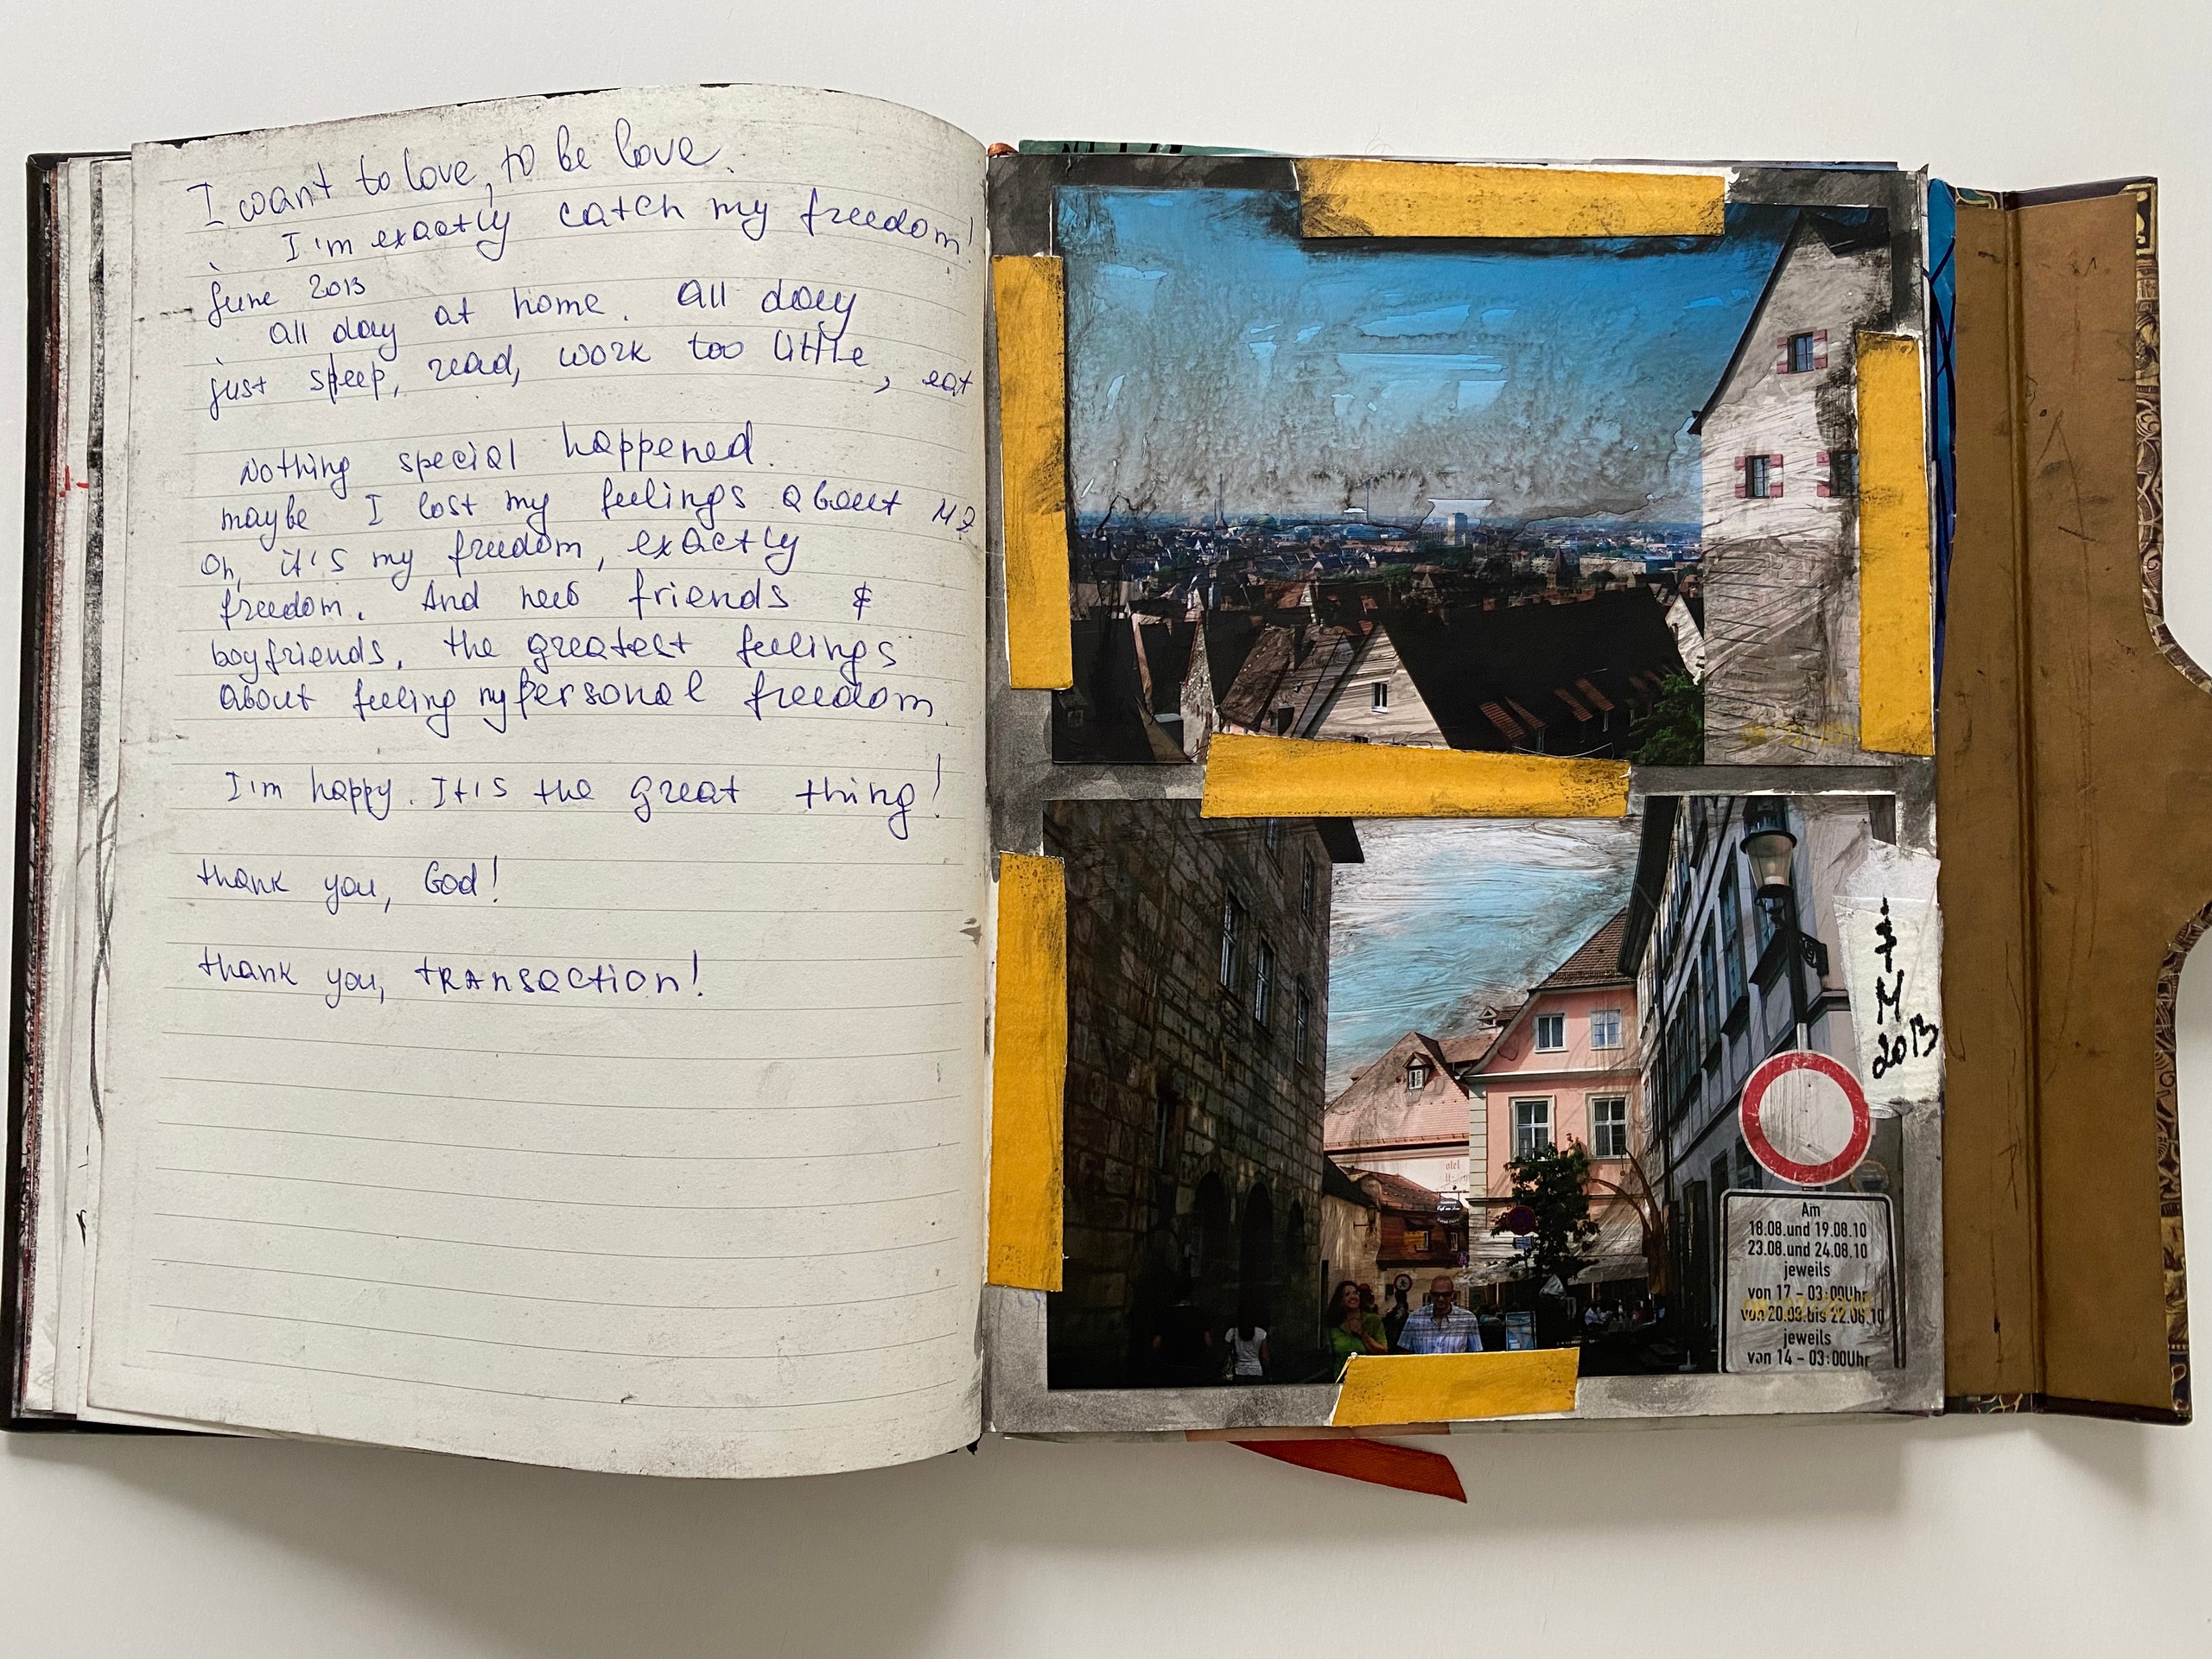 I want to love, to be love.
I'm exactly catch my freedom!
June 2013
All day at home. All day
just sleep, read, work too little, eat
Nothing special happened.
maybe I lost my feelings about
Oh, it's my freedom, exactly
freedom. And new friends &
boyfriends, the greatest feelings
about feeling my personal freedom.
I'm happy. It's the great thing!
thank you, God!
thank you, tRAnsaction!
M
2013
otel
Am
18.08.und 19.08.10
23.08.und 24.08.10
jeweils
von 17 - 03:00Uhr
von 20.08.bis 22.08.10
jeweils
von 14 - 03:00Uhr